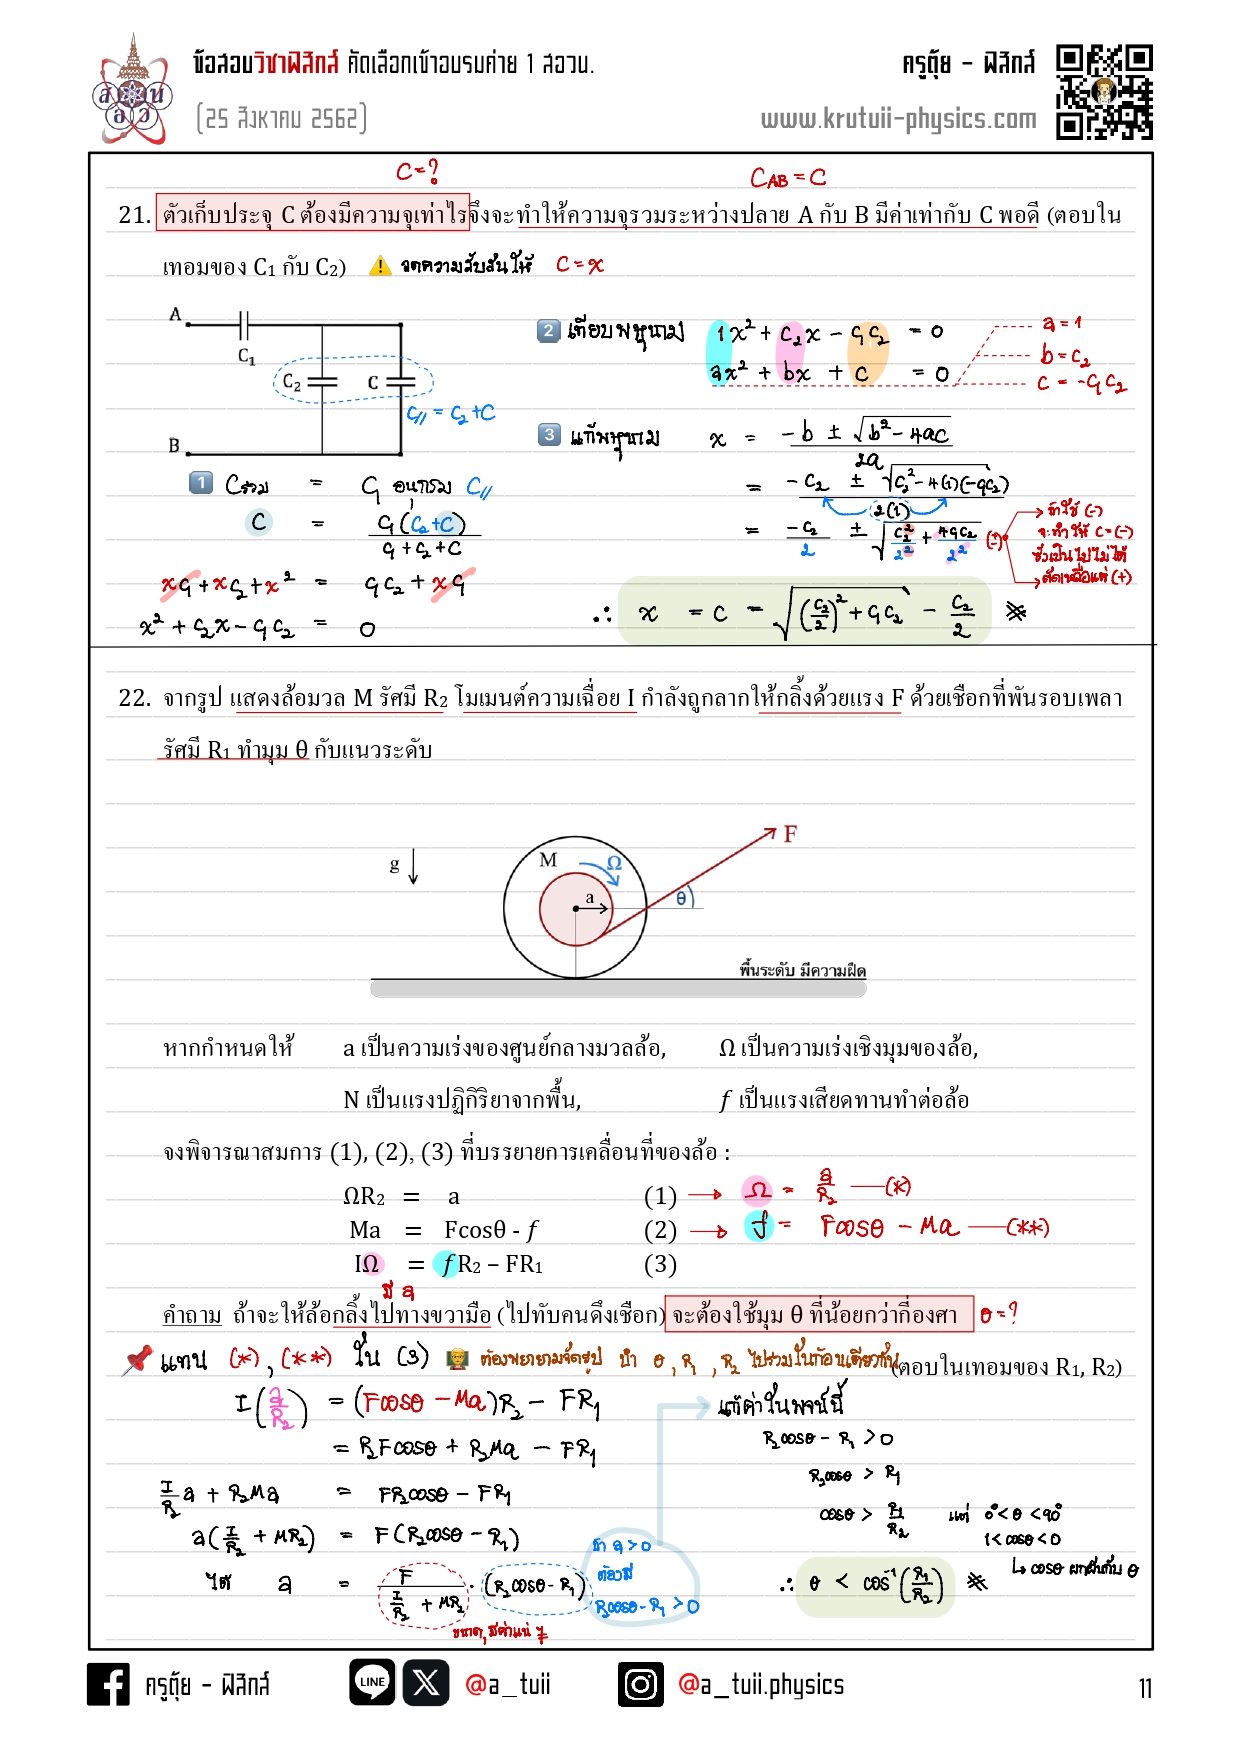 ข้อสอบวิชาฟิสิกส์ คัดเลือกเข้าอบรมค่าย 1 สอวน.
ครูตุ้ย - ฟิสิกส์
(25 สิงหาคม 2562)
www.krutuii-physics.com
C = ?
C_AB = C
21. ตัวเก็บประจุ C ต้องมีความจุเท่าไรจึงจะทำให้ความจุรวมระหว่างปลาย A กับ B มีค่าเท่ากับ C พอดี (ตอบใน
เทอมของ C₁ กับ C₂) ลดความสับสนให้ C = x
A
C₁
C₂
C
B
C// = C₂+C
1 Cรวม = C₁ อนุกรม C//
C = C₁(C₂+C) / C₁+C₂+C
xC₁+xC₂+x² = C₁C₂ + xC₁
x² + C₂x - C₁C₂ = 0
2 เทียบพหุนาม 1x² + C₂x - C₁C₂ = 0
ax² + bx + c = 0
a = 1
b = C₂
c = -C₁C₂
3 แก้พหุนาม x = -b ± √(b²-4ac) / 2a
= -C₂ ± √(C₂²-4(1)(-C₁C₂)) / 2(1)
= -C₂/2 ± √(C₂²/2² + 4C₁C₂/2²)
ถ้าใช้ (-)
จะทำให้ C = (-)
ซึ่งเป็นไปไม่ได้
ตัดเหลือแค่ (+)
∴ x = C = √((C₂/2)² + C₁C₂) - C₂/2 ※
22. จากรูป แสดงล้อมวล M รัศมี R₂ โมเมนต์ความเฉื่อย I กำลังถูกลากให้กลิ้งด้วยแรง F ด้วยเชือกที่พันรอบเพลา
รัศมี R₁ ทำมุม θ กับแนวระดับ
g
M
Ω
a
θ
F
พื้นระดับ มีความฝืด
หากกำหนดให้ a เป็นความเร่งของศูนย์กลางมวลล้อ, Ω เป็นความเร่งเชิงมุมของล้อ,
N เป็นแรงปฏิกิริยาจากพื้น, f เป็นแรงเสียดทานทำต่อล้อ
จงพิจารณาสมการ (1), (2), (3) ที่บรรยายการเคลื่อนที่ของล้อ :
ΩR₂ = a (1) → Ω = a/R₂ —(*)
Ma = Fcosθ - f (2) → f = Fcosθ - Ma —(**)
IΩ = fR₂ – FR₁ (3)
มี a
คำถาม ถ้าจะให้ล้อกลิ้งไปทางขวามือ (ไปทับคนดึงเชือก) จะต้องใช้มุม θ ที่น้อยกว่ากี่องศา θ = ?
แทน (*), (**) ใน (3) ต้องพยายามจัดรูป นำ θ, R₁, R₂ ไปรวมในก้อนเดียวกัน (ตอบในเทอมของ R₁, R₂)
I(a/R₂) = (Fcosθ - Ma)R₂ - FR₁
= R₂Fcosθ + R₂Ma - FR₁
I/R₂ a + R₂Ma = FR₂cosθ - FR₁
a(I/R₂ + MR₂) = F(R₂cosθ - R₁)
ได้ a = F / (I/R₂ + MR₂) · (R₂cosθ - R₁)
ถ้า a > 0
ต้องมี
R₂cosθ - R₁ > 0
แก้ค่าในพจน์นี้
R₂cosθ - R₁ > 0
R₂cosθ > R₁
cosθ > R₁/R₂ แต่ 0° < θ < 90°
1 < cosθ < 0
↳ cosθ ผกผันกับ θ
∴ θ < cos⁻¹(R₁/R₂) ※
ครูตุ้ย - ฟิสิกส์
LINE
X
@a_tuii
@a_tuii.physics
11